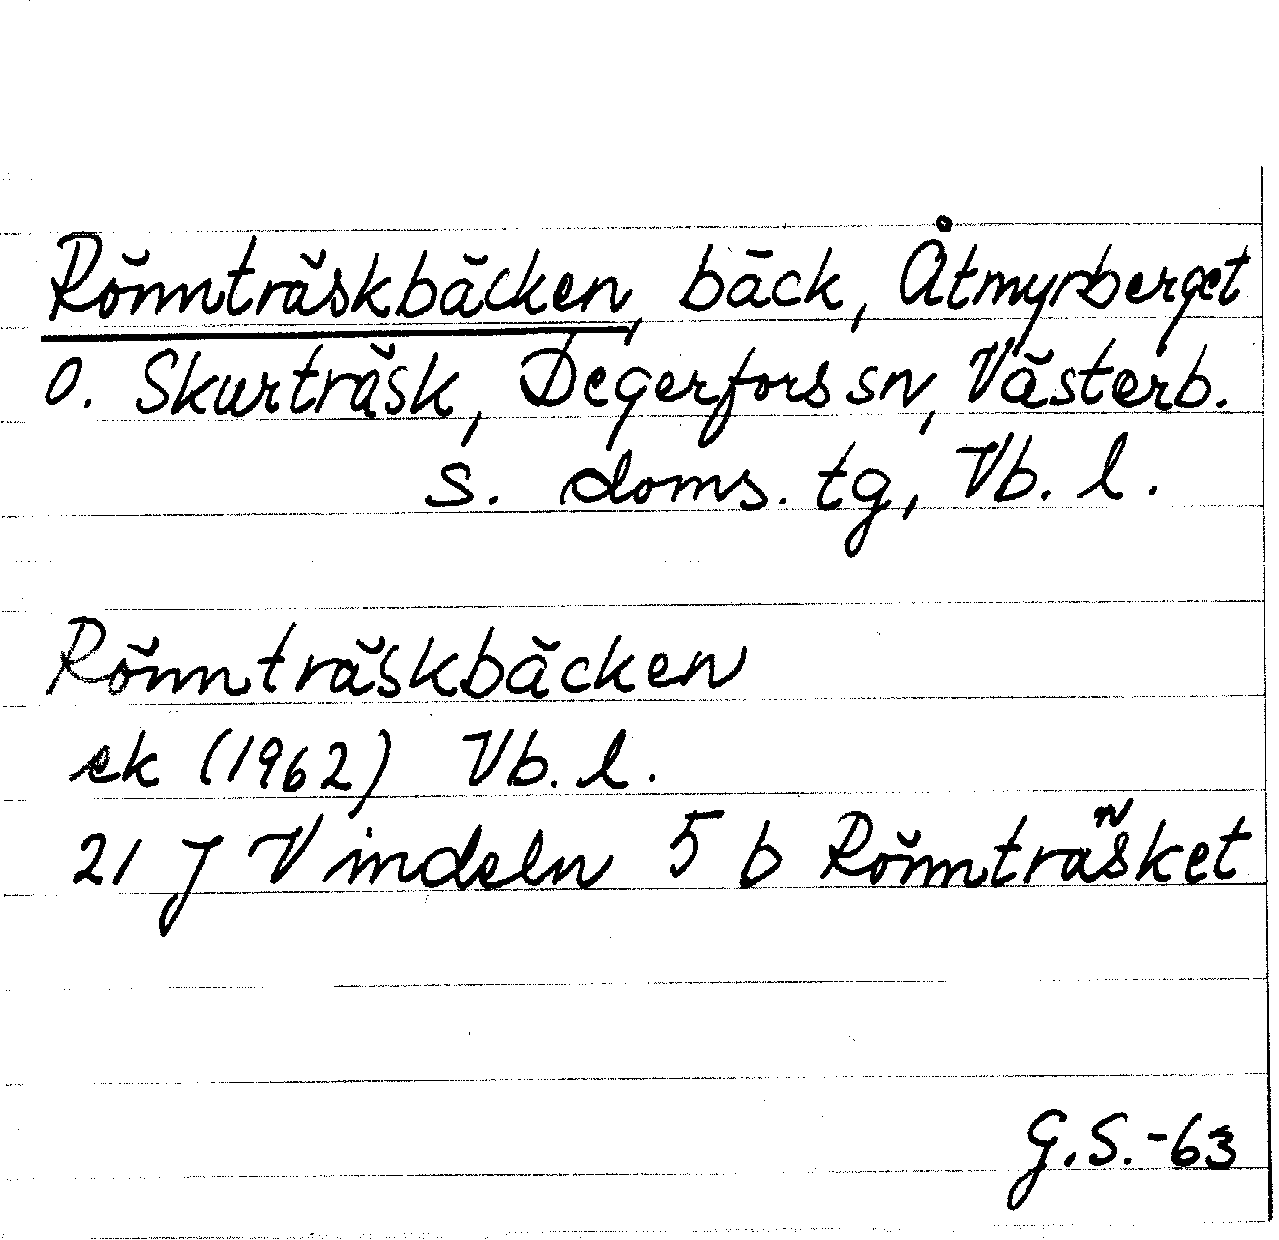 Rönnträskbäcken, bäck, Åtmyrberget
o. Skurträsk, Degerfors sn, Västerb.
s. doms. tg, Vb. l.
Rönnträskbäcken
ek (1962) Vb. l.
21 J Vindeln 5 b Rönnträsket
G.S.-63